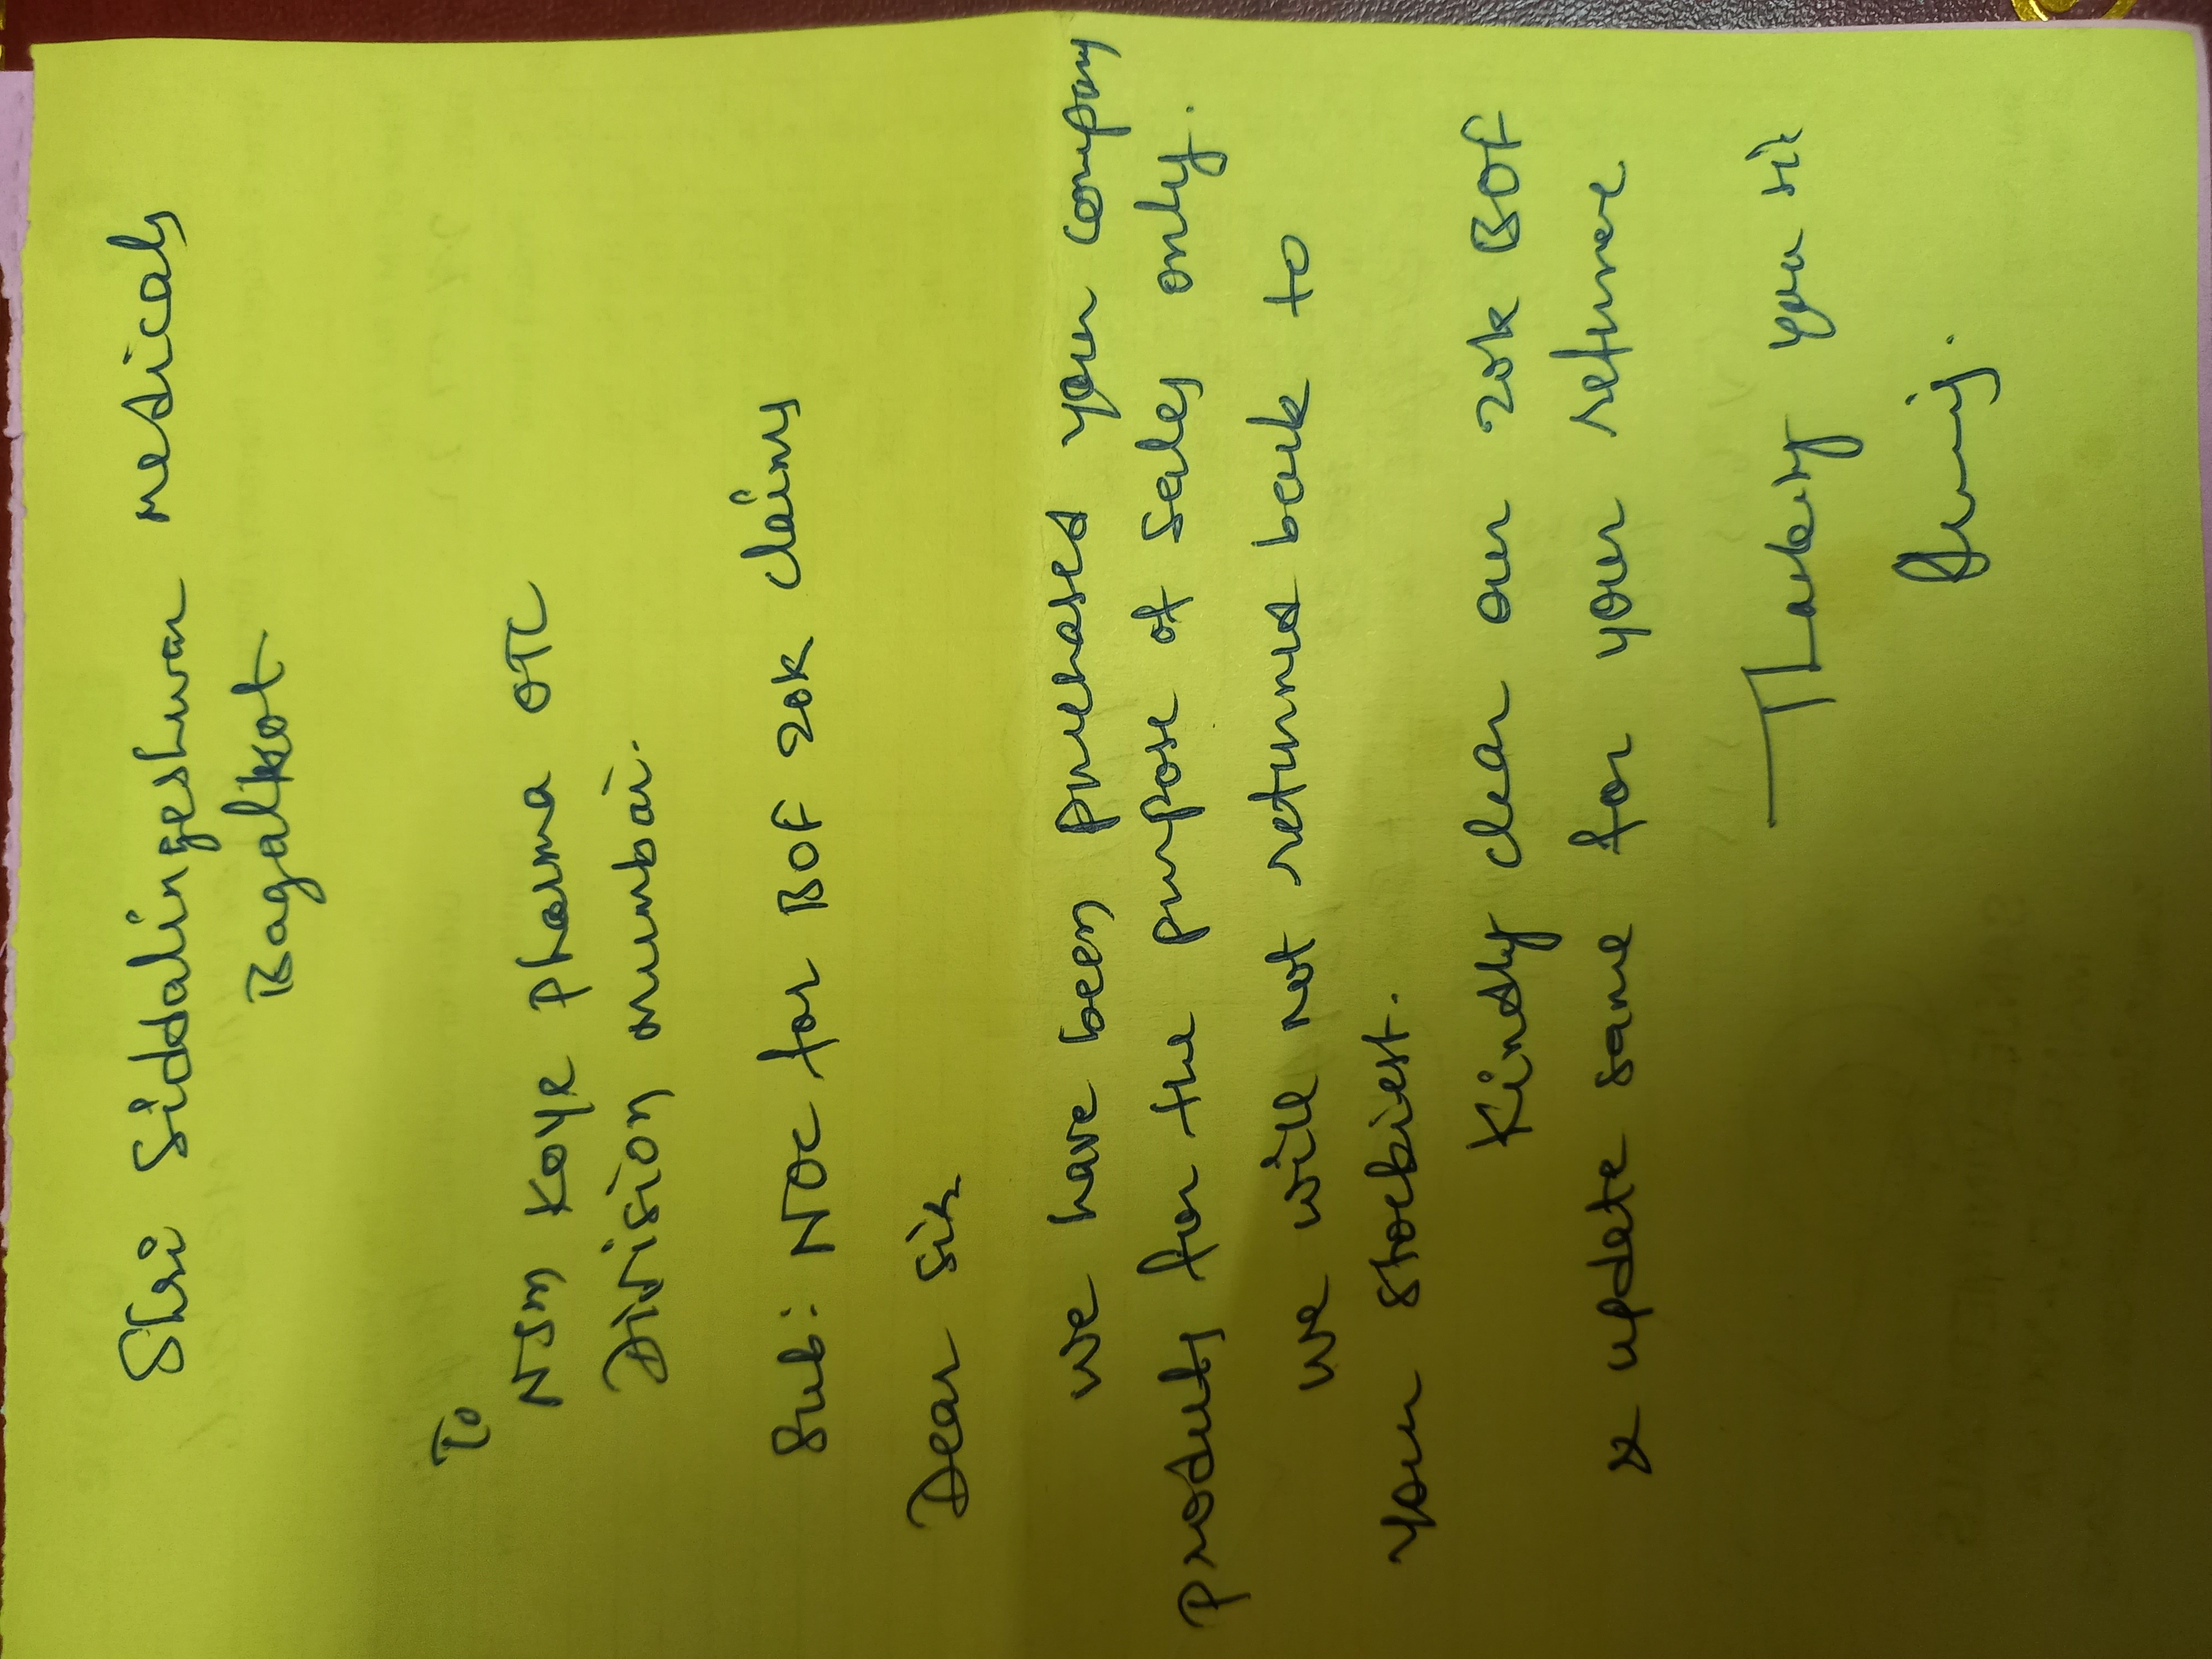 Shri Siddalingeshwar medicals
Bagalkot
To
NSM Koye Pharma OTC
Division mumbai.
Sub: NOC for BOF 20k claims
Dear Sir
we have been purchased your company
products for the purpose of Sales only.
we will not returned back to
your stockiest.
Kindly clear our 20k BOF
& update same for your
Thanking you sir